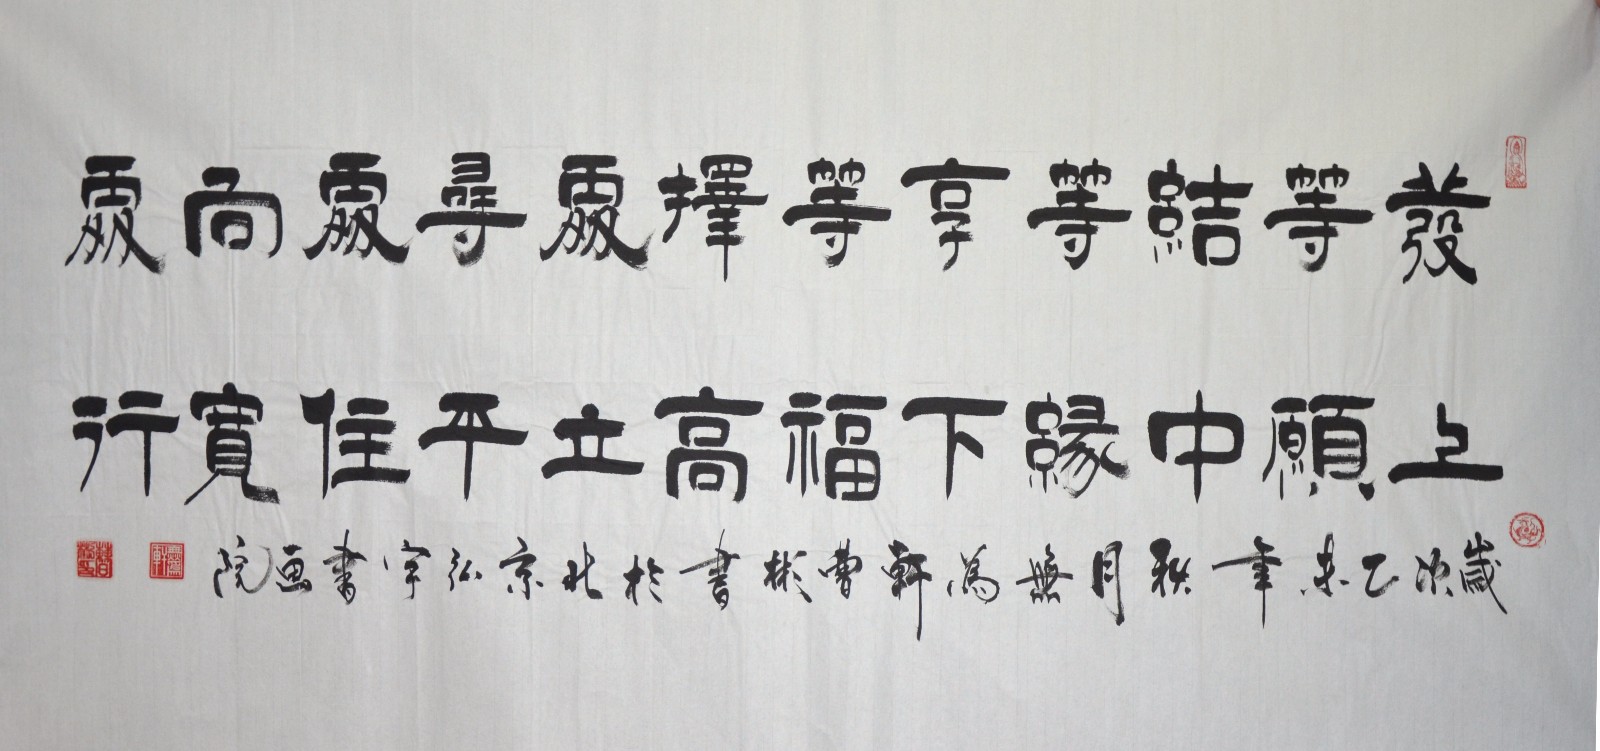 發上
等願
結中
等緣
享下
等福
擇高
處立
尋平
處住
向寬
處行
歲次乙未年秋月無為軒曹彬書於北京弘宇書画院